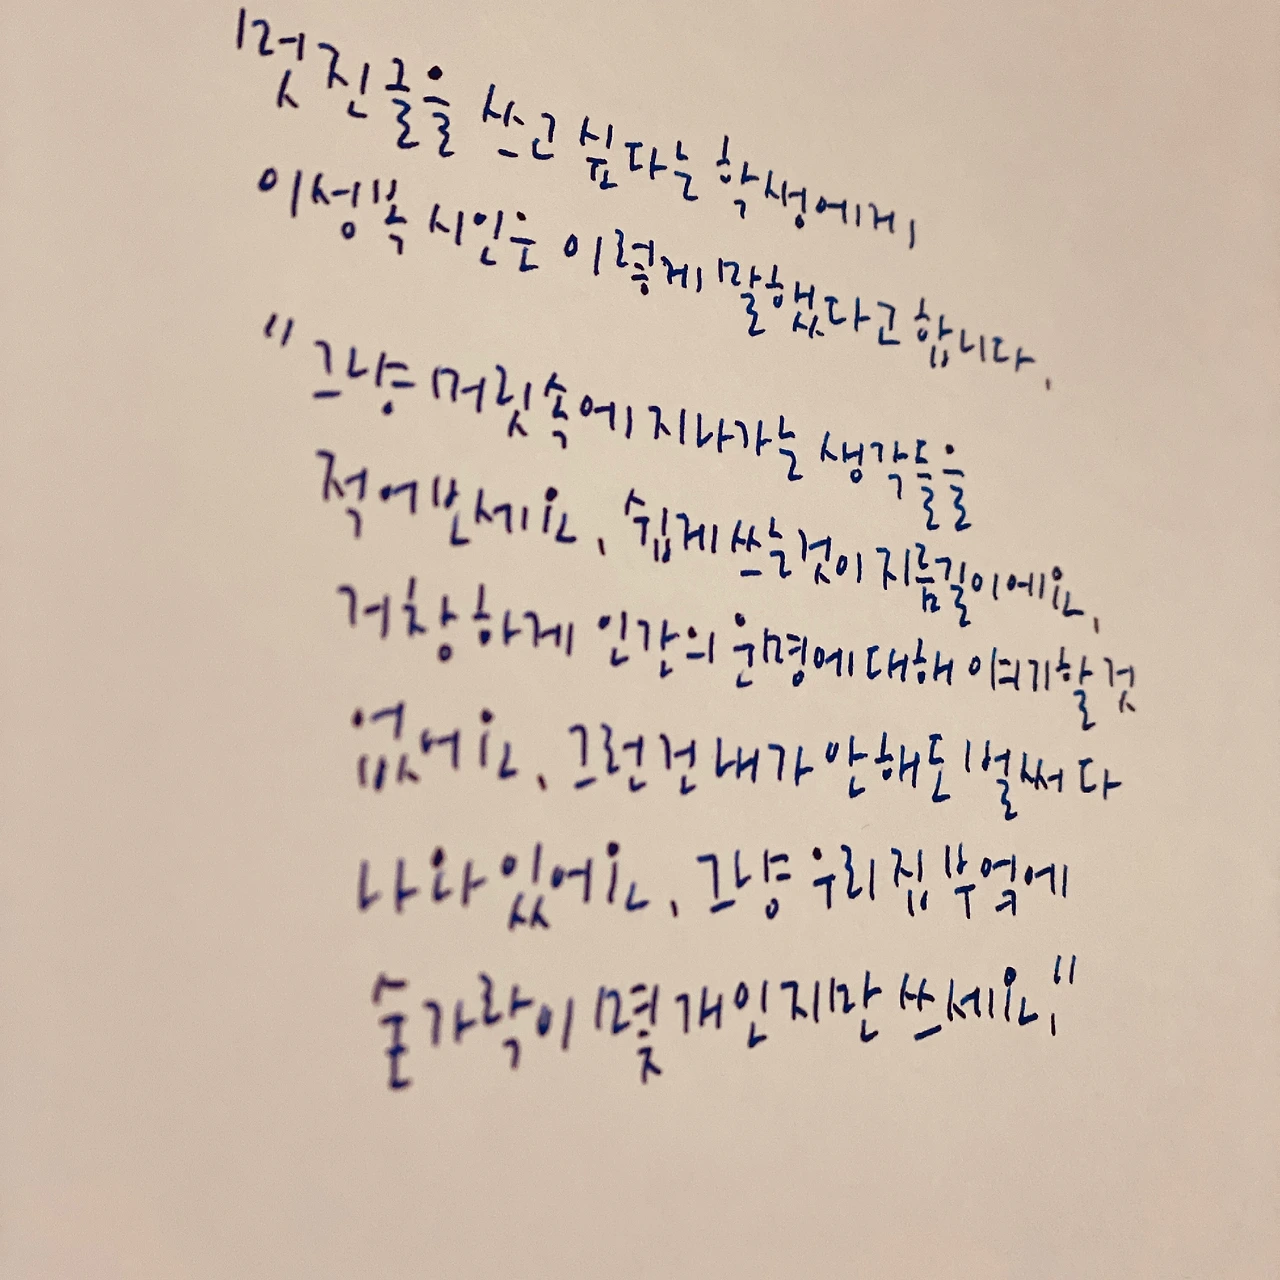 멋진 글을 쓰고 싶다는 학생에게
이성복 시인은 이렇게 말했다고 합니다.
"그냥 머릿속에 지나가는 생각들을
적어보세요. 쉽게 쓰는 것이 지름길이에요.
거창하게 인간의 운명에 대해 얘기할 것
없어요. 그런건 내가 안해도 벌써 다
나와있어요. 그냥 우리집 부엌에
숟가락이 몇 개인지만 쓰세요."